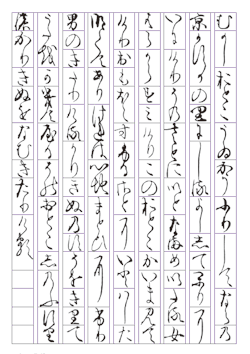 むかしおとこうゐかうふりしてならの
京かすかの里にしるよししてかりに
いにけりそのさとにいとなまめいたる女
はらからすみけりこのおとこかいまみて
けりおもほえすふるさとにいとはした
なくてありけれは心地まとひにけり
男のきたりけるかりきぬのすそをきりて
うたを書てやるそのおとこしのふすりの
狩きぬをなむきたりける